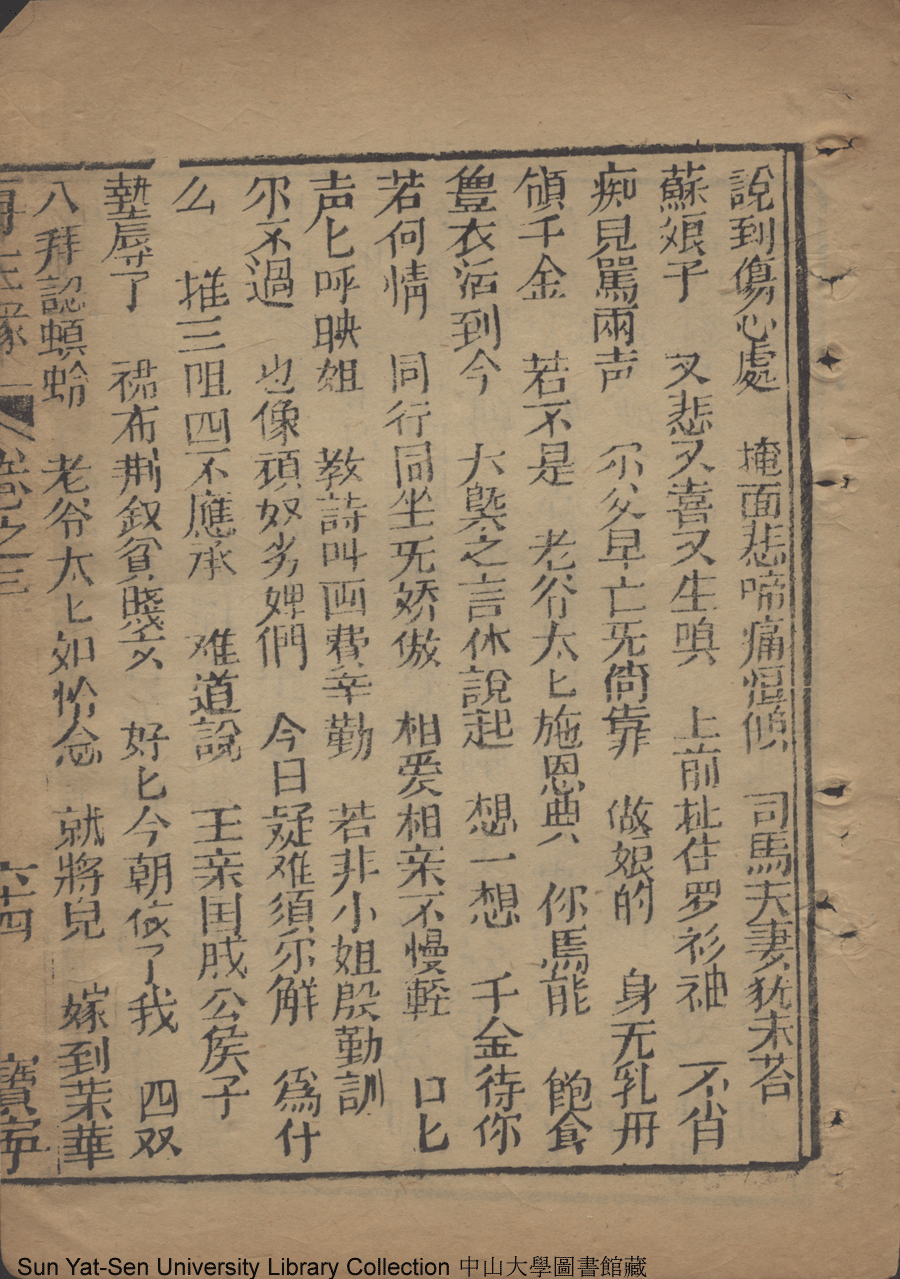 說到傷心處 掩面悲啼痛恒傾 司馬夫妻犹未荅
蘇娘子 又悲又喜又生嗔 上前扯住罗衫袖 不肖
痴兒駡兩声 尔父早亡旡倚靠 做娘的 身无乳毋
領千金 若不是 老爷太匕施恩典 你焉能 飽食
豊衣活到今 大槩之言休說起 想一想 千金待你
若何情 同行同坐旡娇傲 相爱相亲不慢輕 口匕
声匕呼映姐 教詩叫画費辛勤 若非小姐殷勤訓
尔不過 也像頑奴劣婢們 今日疑难須尔解 爲什
么 推三阻四不應承 难道說 王亲国戚公侯子
辱了 裙布荆釵貧賤女 好匕今朝依了我 四双
八拜認螟蛉 老爷太匕如怜念 就將兒 嫁到華
再生缘 卷之三 六十四 寶寧
Sun Yat-Sen University Library Collection 中山大學圖書館藏